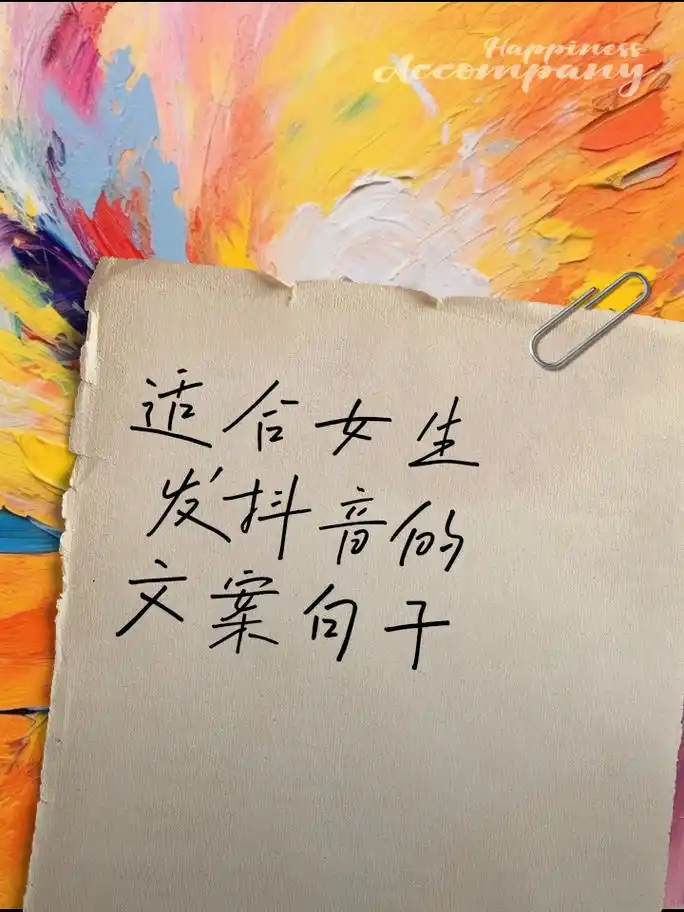 Happiness
Accompany
适合女生
发抖音的
文案句子